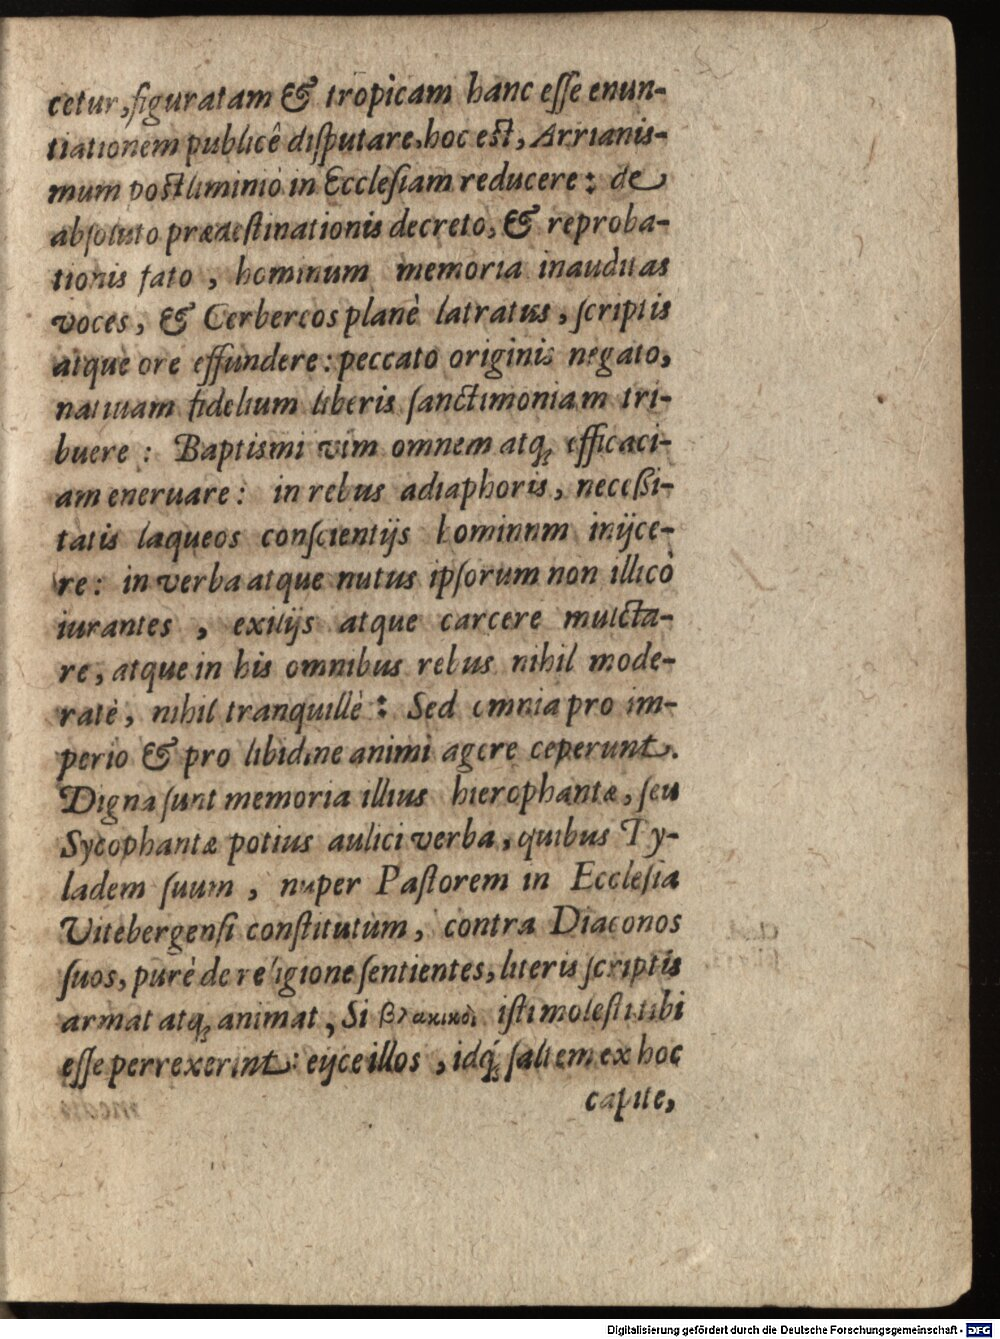 cetur, figuratam & tropicam hanc eſſe enun-
tiationem publicê diſputare, hoc eſt, Arrianis-
mum poſtliminio in Eccleſiam reducere: de
abſoluto prædeſtinationis decreto, & reproba-
tionis fato, hominum memoria inauditas
voces, & Cerbereos planè latratus, ſcriptis
atque ore effundere: peccato originis negato,
natiuam fidelium liberis ſanctimoniam tri-
buere: Baptismi vim omnem atq́; efficaci-
am eneruare: in rebus adiaphoris, neceßi-
tatis laqueos conſcientijs hominum inijce-
re: in verba atque nutus ipſorum non illicò
iurantes, exilijs atque carcere mulcta-
re, atque in his omnibus rebus nihil mode-
ratè, nihil tranquillè: Sed omnia pro im-
perio & pro libidine animi agere ceperunt.
Digna ſunt memoria illius hierophantæ, ſeu
Sycophantæ potius aulici verba, quibus Ty-
ladem ſuum, nuper Paſtorem in Eccleſia
Vitebergenſi conſtitutum, contra Diaconos
ſuos, purè de religione ſentientes, literis ſcriptis
armat atq; animat, Si βλακικοὶ iſti moleſti tibi
eſſe perrexerint: eijce illos, idq́; ſaltem ex hoc
capite,
Digitalisierung gefördert durch die Deutsche Forschungsgemeinschaft - DFG